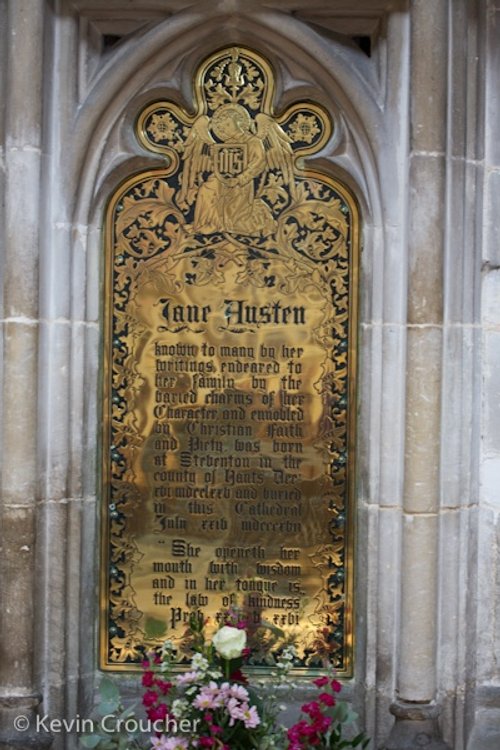 IHS
Jane Austen
known to many by her
writings, endeared to
her family by the
varied charms of Her
Character and ennobled
by Christian Faith
and Piety, was born
at Steventon in the
county of Hants Dec:
xvi mdcclxxv and buried
in this Cathedral
July xxiv mdcccxvii
"She openeth her
mouth with wisdom
and in her tongue is
the law of kindness"
Prov xxxi v xxvi
© Kevin Croucher